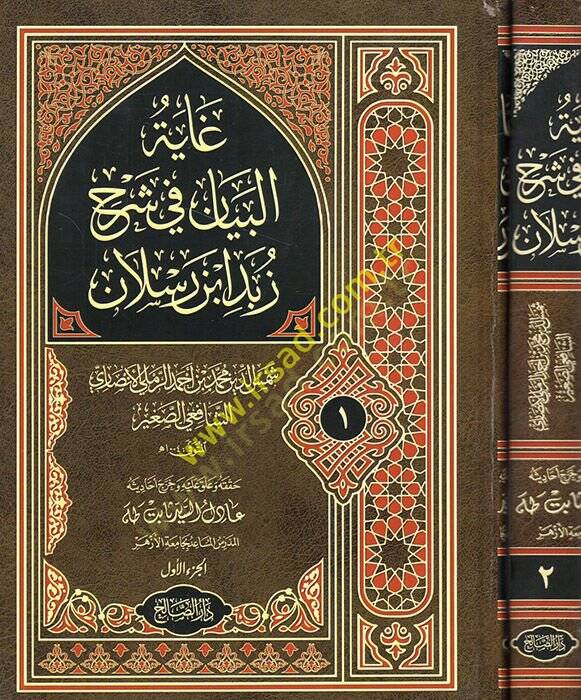 غاية
البيان في شرح
زبد ابن رسلان
شمس الدين محمد بن أحمد الرملي الأنصاري
الشافعي الصغير
المتوفى ١٠٠٤هـ
حققه وعلق عليه وخرج أحاديثه
عادل السيد ثابت طه
المدرس المساعد بجامعة الأزهر
الجزء الأول
دار الصالح
١
www.irsad.com.tr
ية
في شرح
سلان
شمس الدين محمد بن أحمد الرملي الأنصاري
الشافعي الصغير
وخرج أحاديثه
ثابت طه
معة الأزهر
٢
دار الصالح